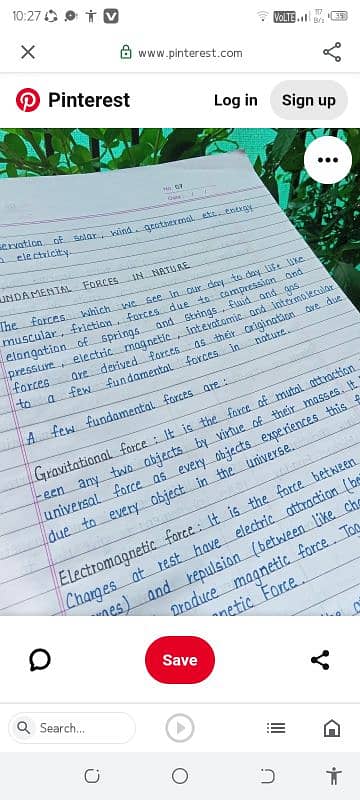 10:27
VoLTE
117
B/s
35
www.pinterest.com
Pinterest
Log in
Sign up
No. 07
Date
servation of solar, wind, geothermal etc. energy
electricity.
UNDAMENTAL FORCES IN NATURE
The forces which we see in our day to day life like
muscular, friction, forces due to compression and
elongation of springs and strings, fluid and gas
pressure, electric magnetic, interatomic and intermolecular
forces are derived forces as their origination are due
to a few fundamental forces in nature.
A few fundamental forces are :
Gravitational force : It is the force of mutal attraction
-een any two objects by virtue of their masses. It
universal force as every objects experiences this f
due to every object in the universe.
Electromagnetic force : It is the force between
Charges at rest have electric attraction (be
ges) and repulsion (between like cha
produce magnetic force. Tog
netic Force.
Save
Search...